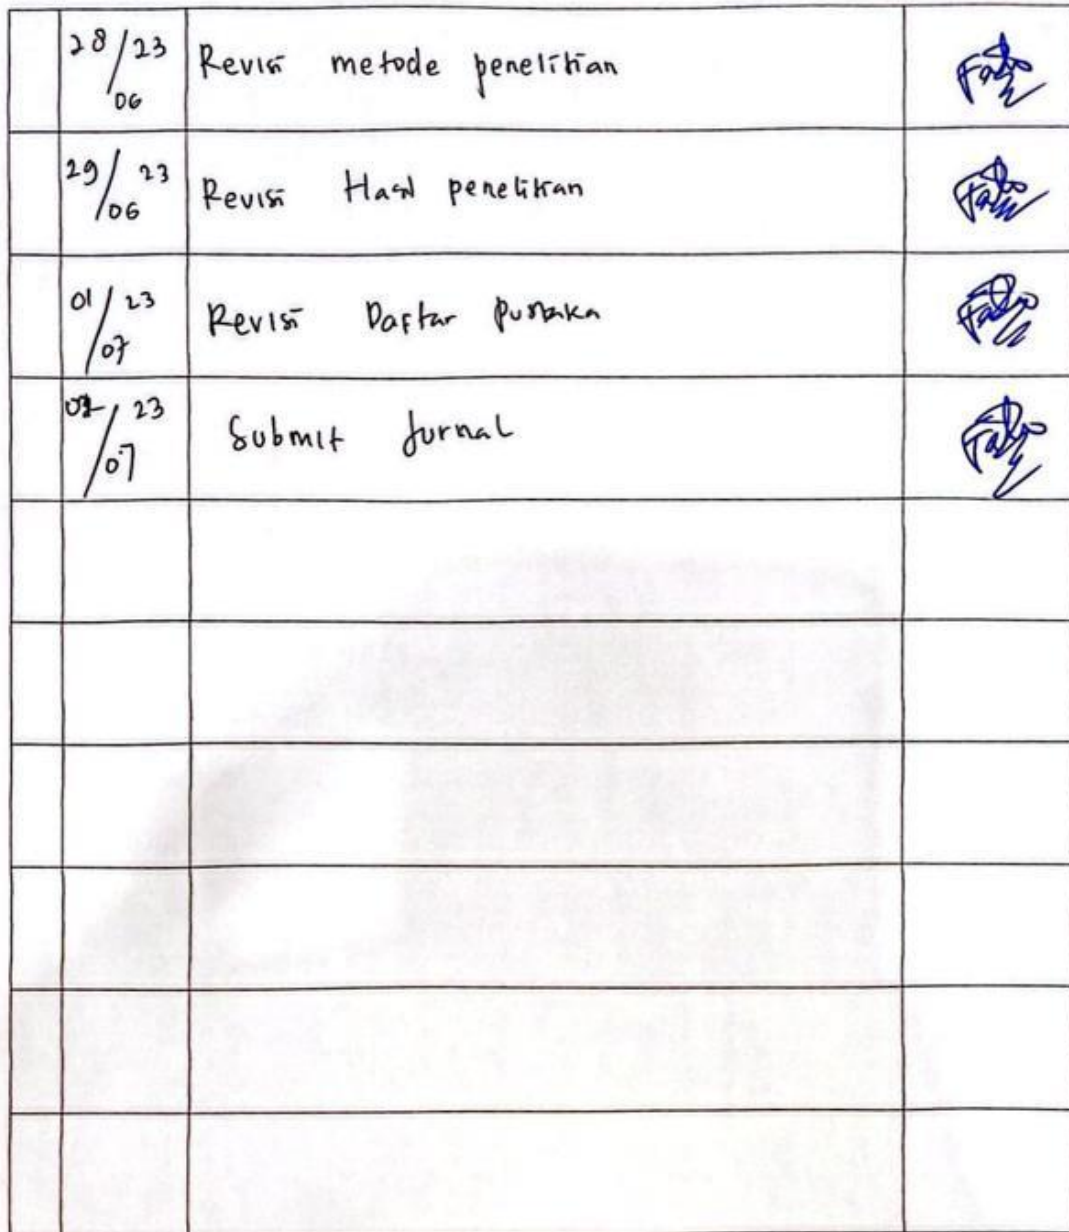 28/06 23 Revisi metode penelitian
29/06 23 Revisi Hasil penelitian
01/07 23 Revisi Daftar Pustaka
07 23 Submit Jurnal